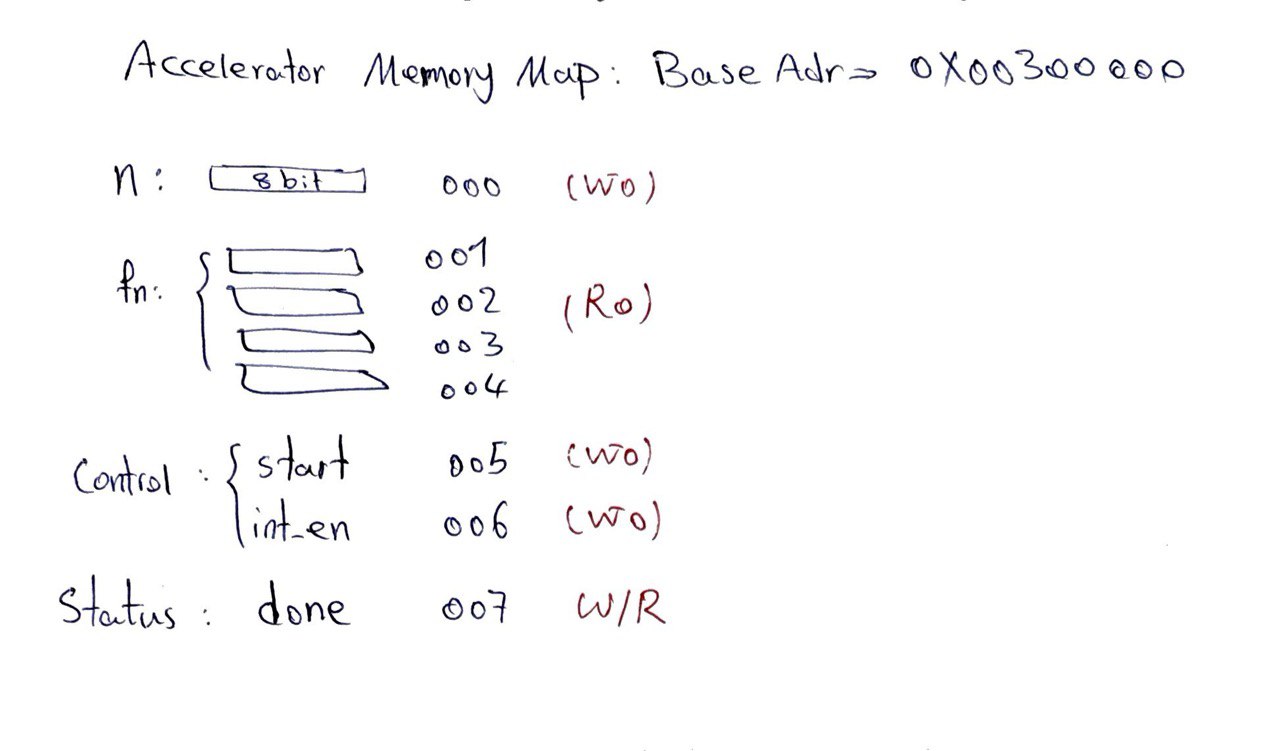 Accelerator Memory Map: Base Adr= 0X00300000
n: 8 bit 000 (WO)
fn: 001
002 (RO)
003
004
Control: start 005 (WO)
int_en 006 (WO)
Status: done 007 W/R